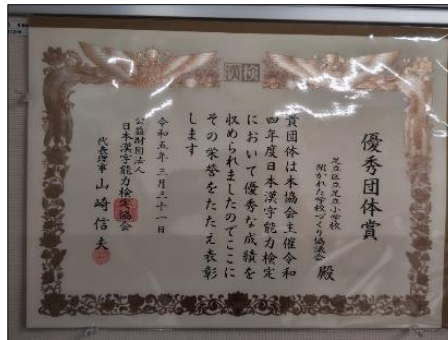 漢検
優秀団体賞
足立区立足立小学校
開かれた学校づくり協議会 殿
貴団体は本協会主催令和
四年度日本漢字能力検定
において優秀な成績を
収められましたのでここに
その栄誉をたたえ表彰
します
令和五年三月三十一日
公益財団法人
日本漢字能力検定協会
代表理事 山崎信夫